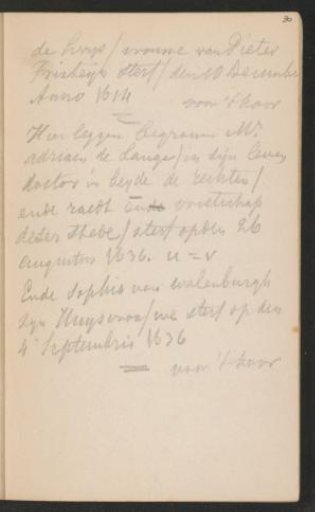 30
de huys / vrouwe van Pieter
sterf / den 10 December
Anno 1614
voor 't koor
Hier leggen begraven Mr.
adriaen de Lange / in zijn leven
doctor in beyde de rechten /
ende raedt ende vrietschap
deser stede / sterf opden 26
augustus 1636. u = v
Ende Sophia van walenburgh
zyn Huysvrou / we sterf op den
4 Septembris 1636
voor 't koor